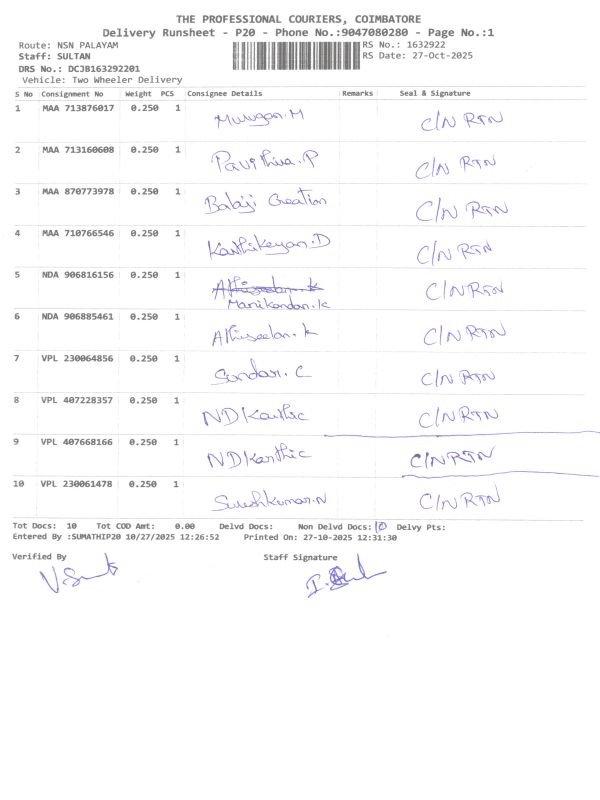 THE PROFESSIONAL COURIERS, COIMBATORE
Delivery Runsheet - P20 - Phone No.:9047080280 - Page No.:1
Route: NSN PALAYAM RS No.: 1632922
Staff: SULTAN RS Date: 27-Oct-2025
DRS No.: DCJB163292201
Vehicle: Two Wheeler Delivery
S No Consignment No Weight PCS Consignee Details Remarks Seal & Signature
1 MAA 713876017 0.250 1 Murugan.M C/N RTN
2 MAA 713160608 0.250 1 Pavithra.P C/N RTN
3 MAA 870773978 0.250 1 Balaji Creation C/N RTN
4 MAA 710766546 0.250 1 Karthikeyan.D C/N RTN
5 NDA 906816156 0.250 1 C/N RTN
Manikandan.K
6 NDA 906885461 0.250 1 Athiseelan.K C/N RTN
7 VPL 230064856 0.250 1 Sundar.C C/N RTN
8 VPL 407228357 0.250 1 NDKarthic C/N RTN
9 VPL 407668166 0.250 1 NDKarthic C/N RTN
10 VPL 230061478 0.250 1 Sureshkumar.N C/N RTN
Tot Docs: 10 Tot COD Amt: 0.00 Delvd Docs: Non Delvd Docs: 10 Delvy Pts:
Entered By :SUMATHIP20 10/27/2025 12:26:52 Printed On: 27-10-2025 12:31:30
Verified By Staff Signature